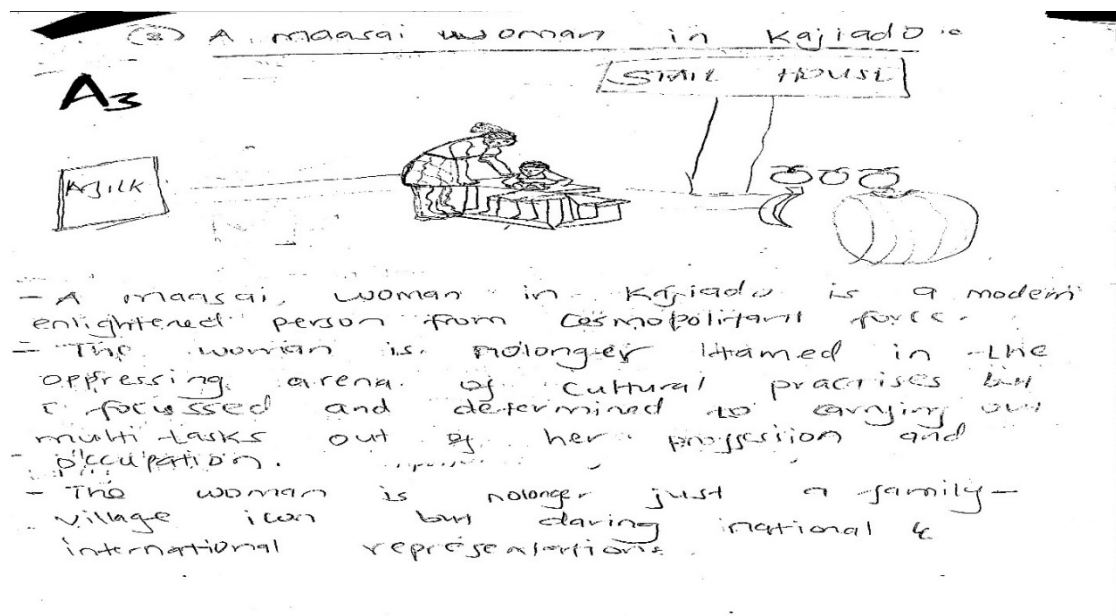 (3) A maasai woman in Kajiado.
STATE HOUSE
A3
MILK
- A maasai, woman in Kajiado is a modern
enlightened person from cosmopolitant force.
- The woman is nolonger in the
oppressing arena of cultural practises but
focussed and determined to carrying out
multi-tasks out of her proffession and
occupation.
- The woman is nolonger just a family-
village icon but daring national &
international representations.